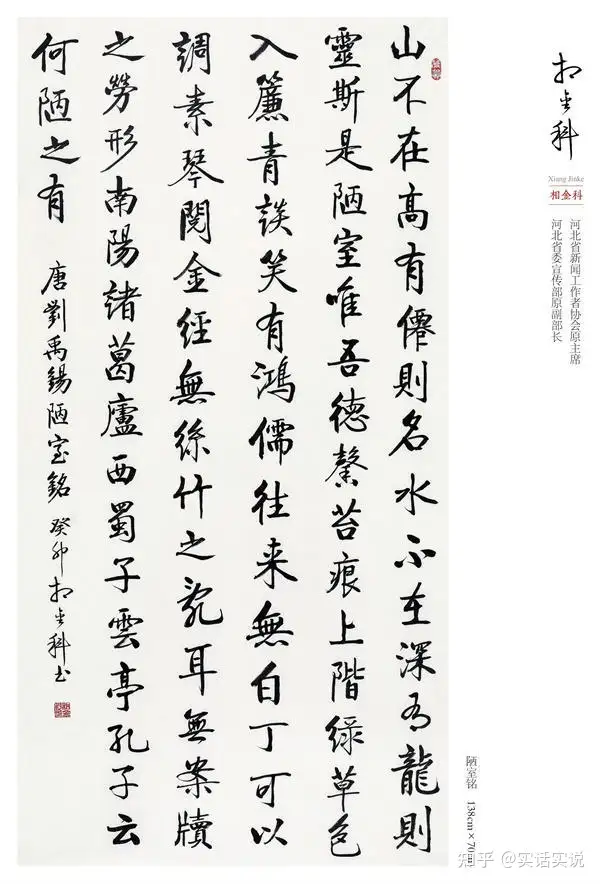 山不在高有僊則名水不在深有龍則
靈斯是陋室唯吾德馨苔痕上階綠草色
入簾青談笑有鴻儒往来無白丁可以
調素琴閱金經無絲竹之亂耳無案牘
之勞形南陽諸葛廬西蜀子雲亭孔子云
何陋之有 唐劉禹錫陋室銘 癸卯相金科书
相金科
Xiang Jinke
相金科
河北省新闻工作者协会原主席
河北省委宣传部原副部长
陋室铭 138cm×70m
知乎 @实话实说